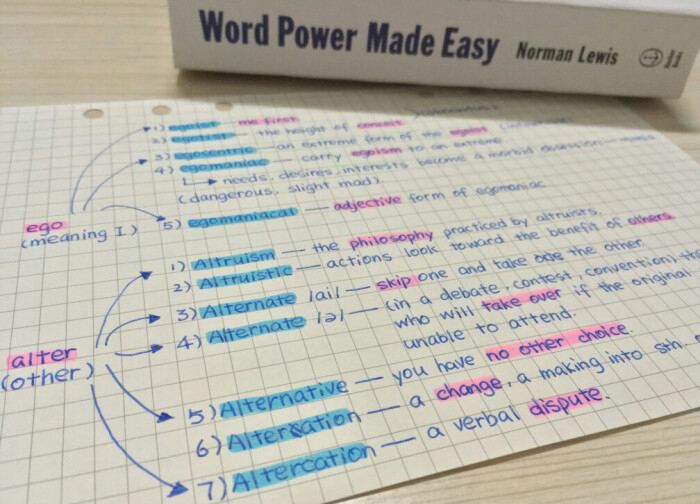 Word Power Made Easy Norman Lewis
1) egoist - me first
2) egotist - the height of conceit
3) egocentric - an extreme form of the egoist
4) egomaniac - carry egoism to an extreme
needs, desires, interests become a morbid obsession
(dangerous, slight mad).
5) egomaniacal - adjective form of egomaniac
ego
(meaning I)
1) Altruism - the philosophy practiced by altruists.
2) Altruistic - actions look toward the benefit of others.
3) Alternate |ai| - skip one and take the other
4) Alternate |ə| - (in a debate, contest, convention)
who will take over if the original
unable to attend.
alter
(other)
5) Alternative - you have no other choice.
6) Alteration - a change, a making into sth.
7) Altercation - a verbal dispute.